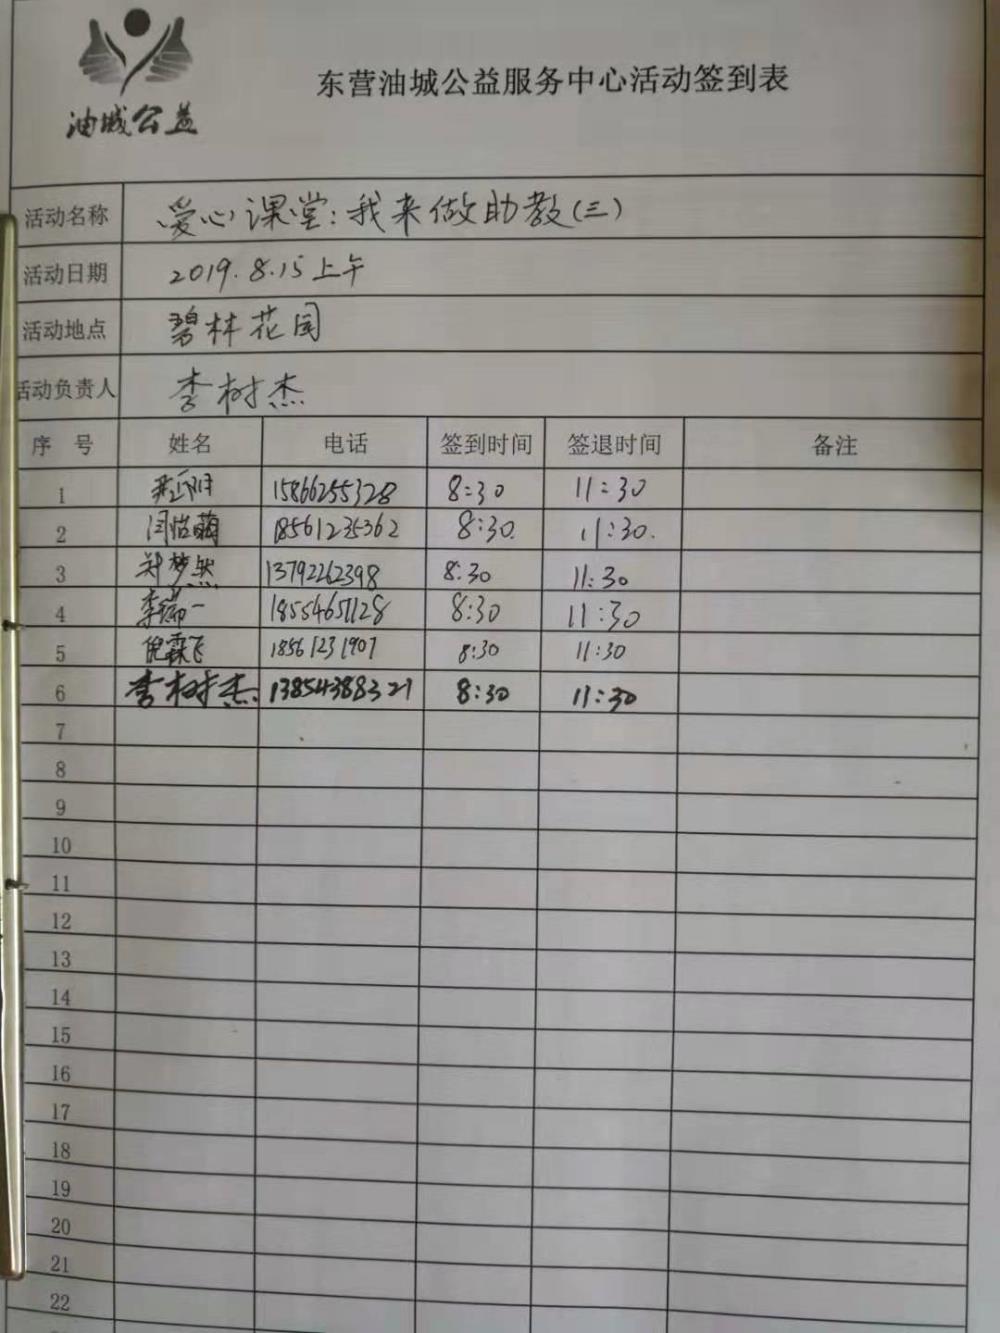 油城公益
东营油城公益服务中心活动签到表
活动名称 爱心课堂:我来做助教(三)
活动日期 2019.8.15上午
活动地点 碧林花园
活动负责人 李树杰
序 号 姓名 电话 签到时间 签退时间 备注
1 15866255328 8:30 11:30
2 18561235362 8:30. 11:30.
3 郑梦然 13792262398 8:30 11:30
4 李瑞一 18554651128 8:30 11:30
5 倪霖飞 18561231907 8:30 11:30
6 李树杰 13854388321 8:30 11:30
7
8
9
10
11
12
13
14
15
16
17
18
19
20
21
22